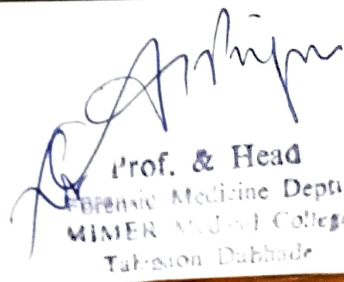 Prof. & Head
Forensic Medicine Deptt
MIMER Medical College
Talegaon Dabhade